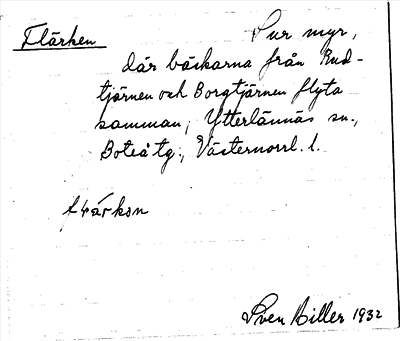 Flärken
Sur myr,
där bäckarna från Rud-
tjärnen och Borgtjärnen flyta
samman; Ytterlännäs sn.,
Boteå tg., Västernorrl. l.
Sven Biller 1932